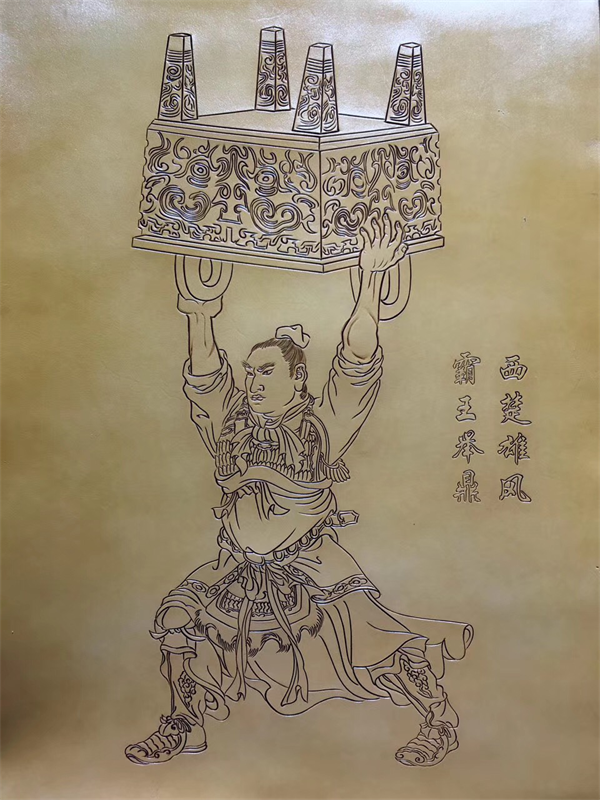 西楚雄风
霸王举鼎